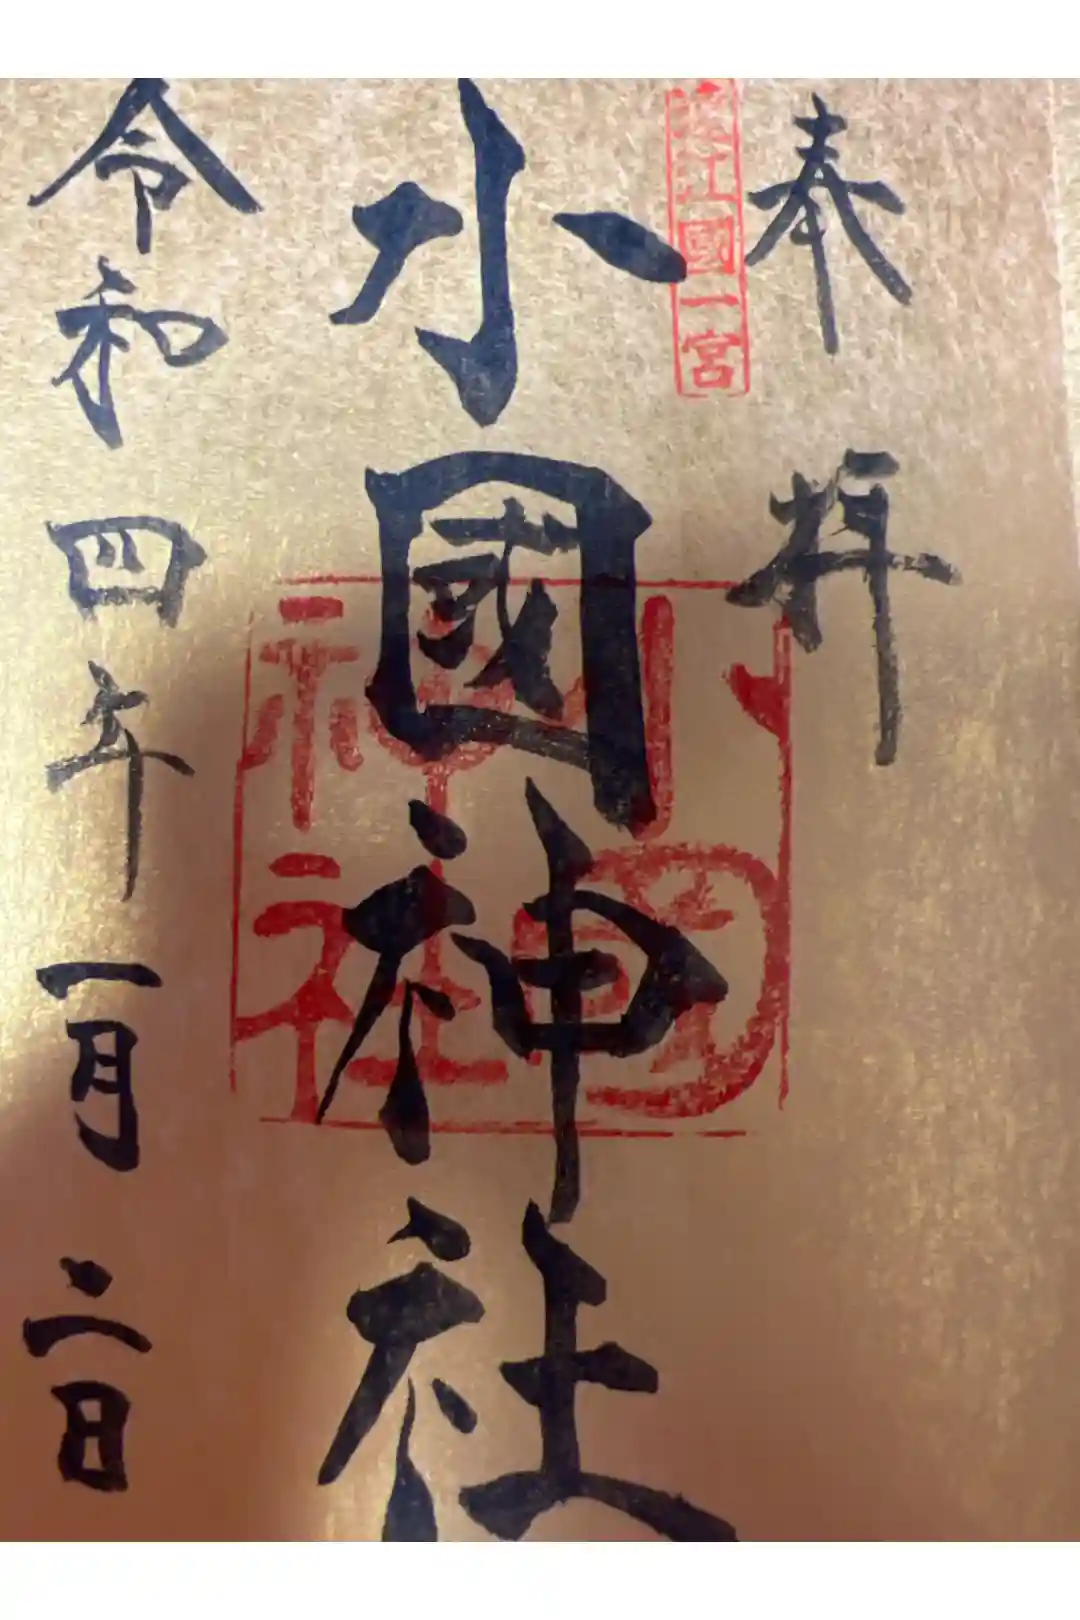 奉拝
遠江國一宮
小國神社
小國神社
令和四年一月二日